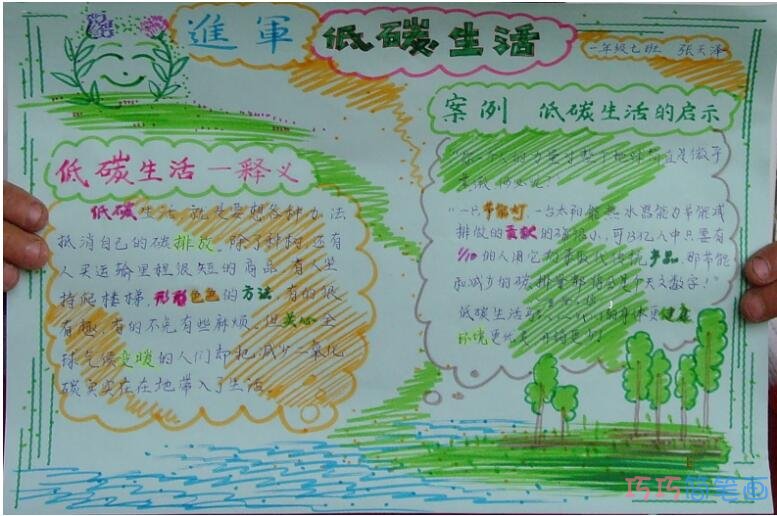 進軍 低碳生活
一年级七班 张天泽
低碳生活一释义
低碳生活 就是要想各种办法
抵消自己的碳排放。除了种树,还有
人买运输里程很短的商品,有人坚
持爬楼梯,形形色色的方法,有的很
有趣,有的不免有些麻烦。但关心全
球气候变暖的人们却把减少二氧化
碳实实在在地带入了生活。
案例 低碳生活的启示
"一只节能灯,一台太阳能热水器能力节能减
排放的贡献的确很小,可13亿人中只要有
1/10的人用它们来取代传统产品,那节能
和减少的碳排量那将会是个天文数字!"
低碳生活
环境更
巧巧简笔画